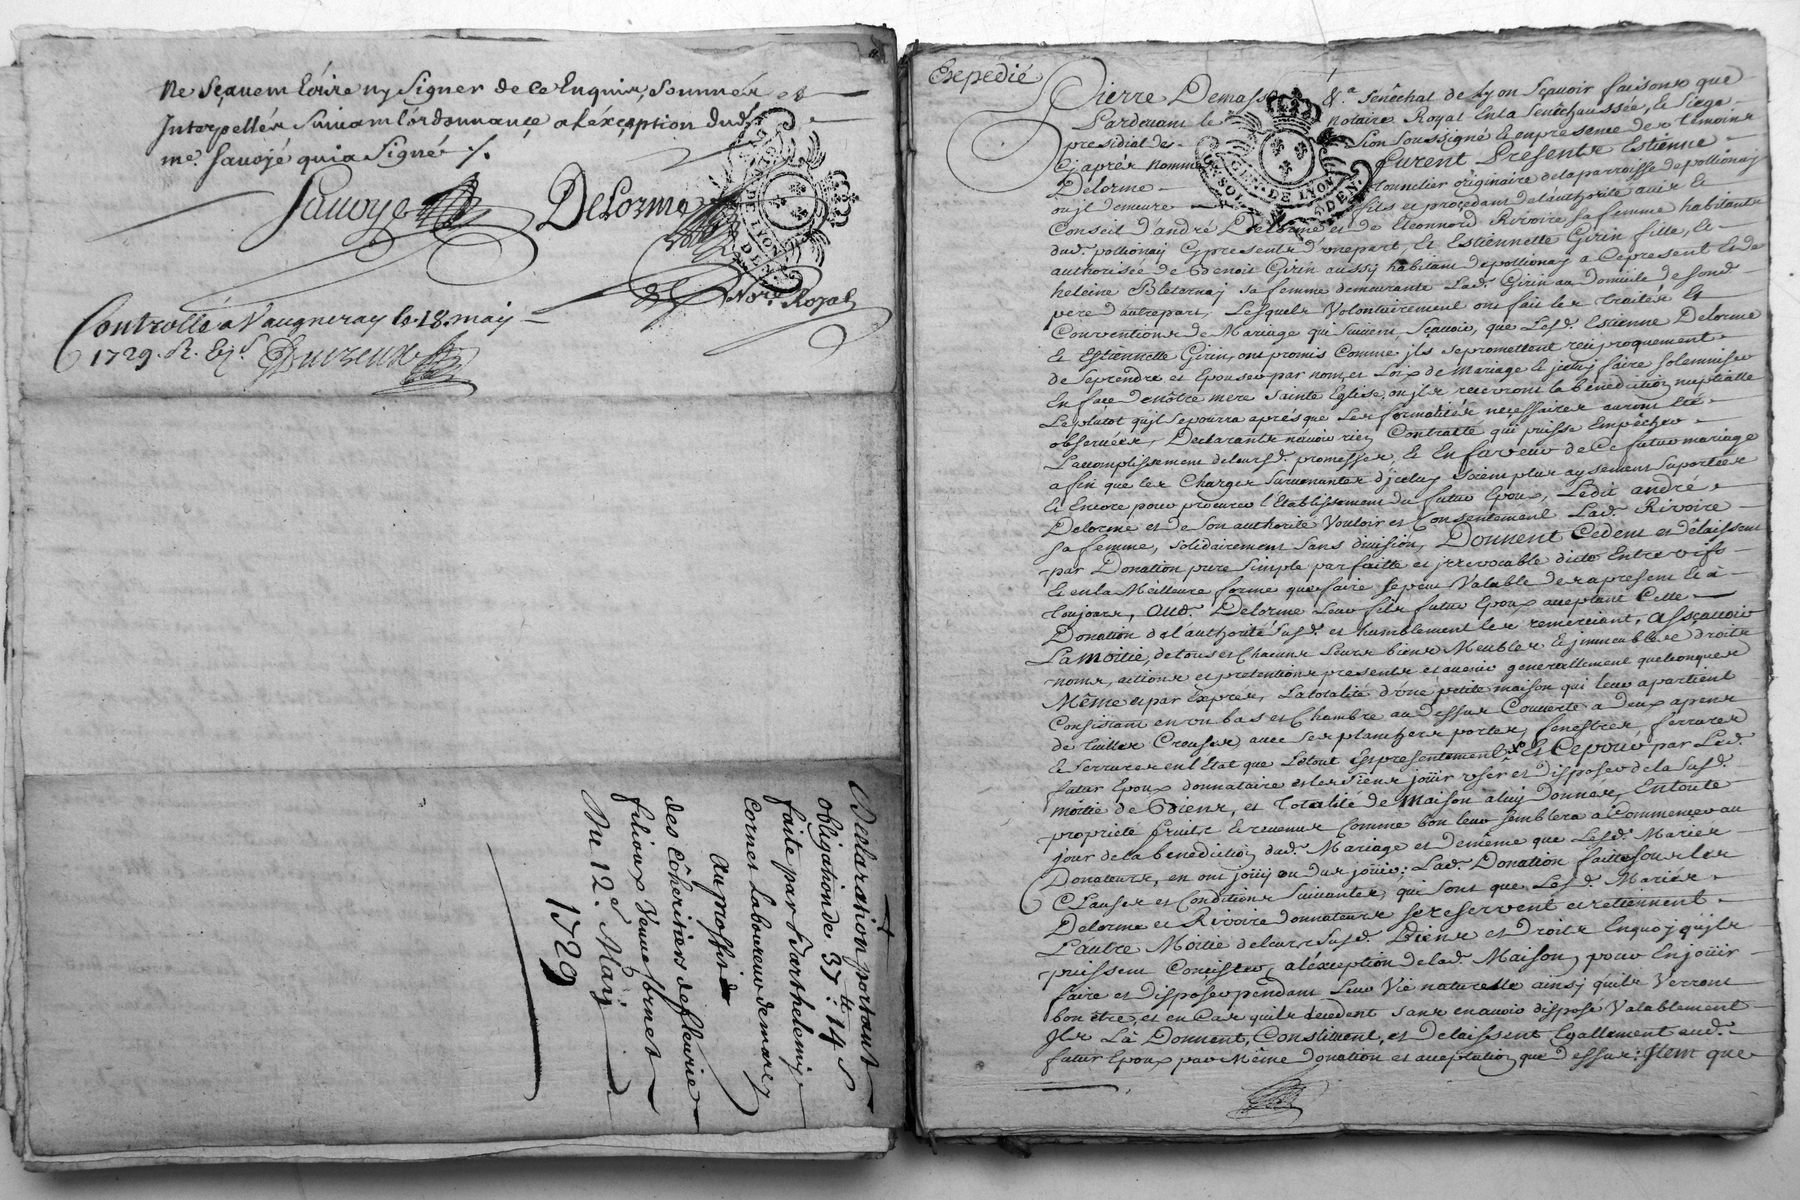 Ne Sçavem Ecrire ny Signer de ce Enquis, Sommés et
Interpellés Suivam L'ordonnance a L'éxception dud.
me. Savoye qui a Signé ./.
Savoye DeLorme
Nore. Royal
Controllé a Vaugneray le 18. may
1729. R.
Declaration portant
obligation de 37tt: 14 s
faite par Barthelemy
Cornet Laboureur demeurt.
Au proffit de
des Cohéritiers de fleurie
filioux Veuve brunet
Du 12e. May
1729
Expedié
Pierre Demasse &.a Sénéchal de Lyon Sçavoir faisons que
Pardevant le notaire Royal En la Senéchaussée, & Siege
presidial de Lion Soussigné & en presence des temoins
Cy après nommé furent Presents Estienne
Delorme tounelier originaire de la parroisse de pollionay
ou jl demeure fils et procedant de l'authorité avis &
Conseil d'andré Delorme et de Eleonnord Rivoire sa femme habitants
dud. pollionay Cy presents d'vne part, Et Estiennette Girin fille, &
authorisée de Benoit Girin aussy habitant de pollionay a Ce present Et de
heleine Bleternay sa femme demeurante Lad. Girin au Domicile de sond.
pere d'autre part, Lesquels Volontairement ont fait les traités Et
Conventions de Mariage qui suivent, Sçavoir, que Lesd. Estienne Delorme
& Estiennette Girin, ont promis Comme jls se promettent reciproquement
de Se prendre et Epouser par nom et Loix de Mariage & jceluy faire solemniser
En face de nôtre mere Sainte Eglise, ou jls recevront la bénédiction nuptialle
Le plûtot qu'jl se pourra après que Les formalités necessaires auront Eté
observées, Declarants n'avoir rien Contracté qui puisse Empêcher
L'accomplissement de leursd. promesses, & En faveur de Ce futur mariage
afin que les Charges Survenantes d'jceluy soient plus aysement Suportées
& Encore pour procurer l'Etablissement du futur Epoux, Ledit andré
Delorme et de Son authorité Vouloir et Consentement Lad. Rivoire
sa femme, solidairement sans division, Donnent Cedent et délaissent
par Donation pure simple parfaitte et jrrevocable ditte Entre vifs
& en la Meilleure forme que faire se peut Valable des a present & à
toujours, Aud. Delorme Leur fils futur Epoux acceptant Cette
Donation de l'authorité susd. et humblement les remerciant, Assçavoir
La moitié, de tous et Chacuns Leurs biens Meubles & jmmeubles droits
noms, actions et pretentions presents et avenir generallement quelconques
Même et par Exprès, La totalité d'vne petite maison qui leur apartient
Consistant en vn bas et Chambre au dessus Couverte a deux apens
de tuilles Creuses, avec ses planchers portes, fenestres, ferrures
& serrures en l'Etat que Letout Est presentement & Ce pour par Led.
futur Epoux donnataire et les siens joüir user et disposer de la Susd.
môitié de Biens, et Totalité de Maison a luy Donnés, En toute
propriété fruits & revenus Comme bon leur semblera a Commencer au
jour de la benediction dud. Mariage et de même que Lesd. Mariés
Donateurs, en ont joüy ou dus joüir: Lad. Donation faitte sous les
Clauses et Conditions Suivantes, qui sont que Lesd. Mariés
Delorme et Rivoire donnateurs se reservent et retiennent
L'autre Moitié de leurs susd. Biens et Droits En quoy qu'jls
puissent Consister, a l'éxception de lad. Maison, pour En joüir
faire et disposer pendant Leur Vie naturelle ainsy qu'ils Verront
bon être, et en Cas qu'ils decedent sans en avoir disposé Valablement
Jls La Donnent, Constituent, et Delaissent Egallement aud.
futur Epoux par Même Donation et acceptation que dessus: Jtem que